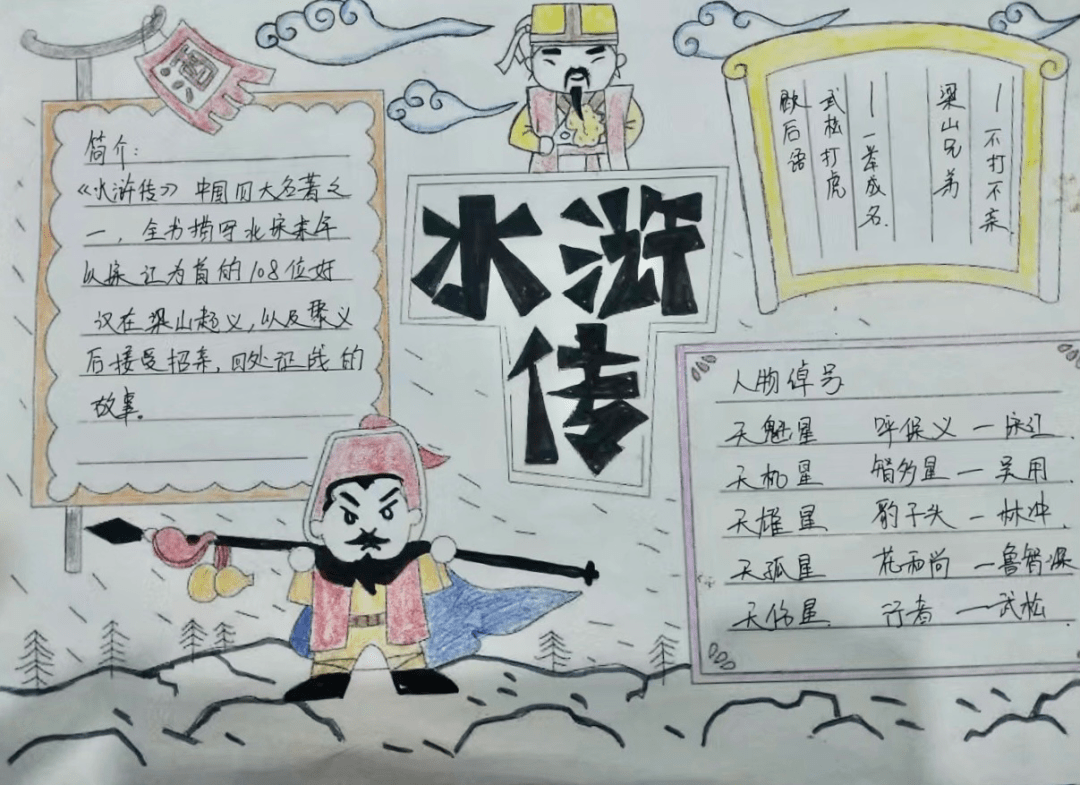 酒
简介:
《水浒传》中国四大名著之
一，全书描写北宋末年
以宋江为首的108位好
汉在梁山起义，以及聚义
后接受招安，四处征战的
故事。
水浒
传
歇后语
武松打虎
—一举成名.
梁山兄弟
—不打不亲.
人物绰号
天魁星 呼保义—宋江.
天机星 智多星—吴用.
天雄星 豹子头—林冲.
天孤星 花和尚—鲁智深
天伤星 行者—武松.